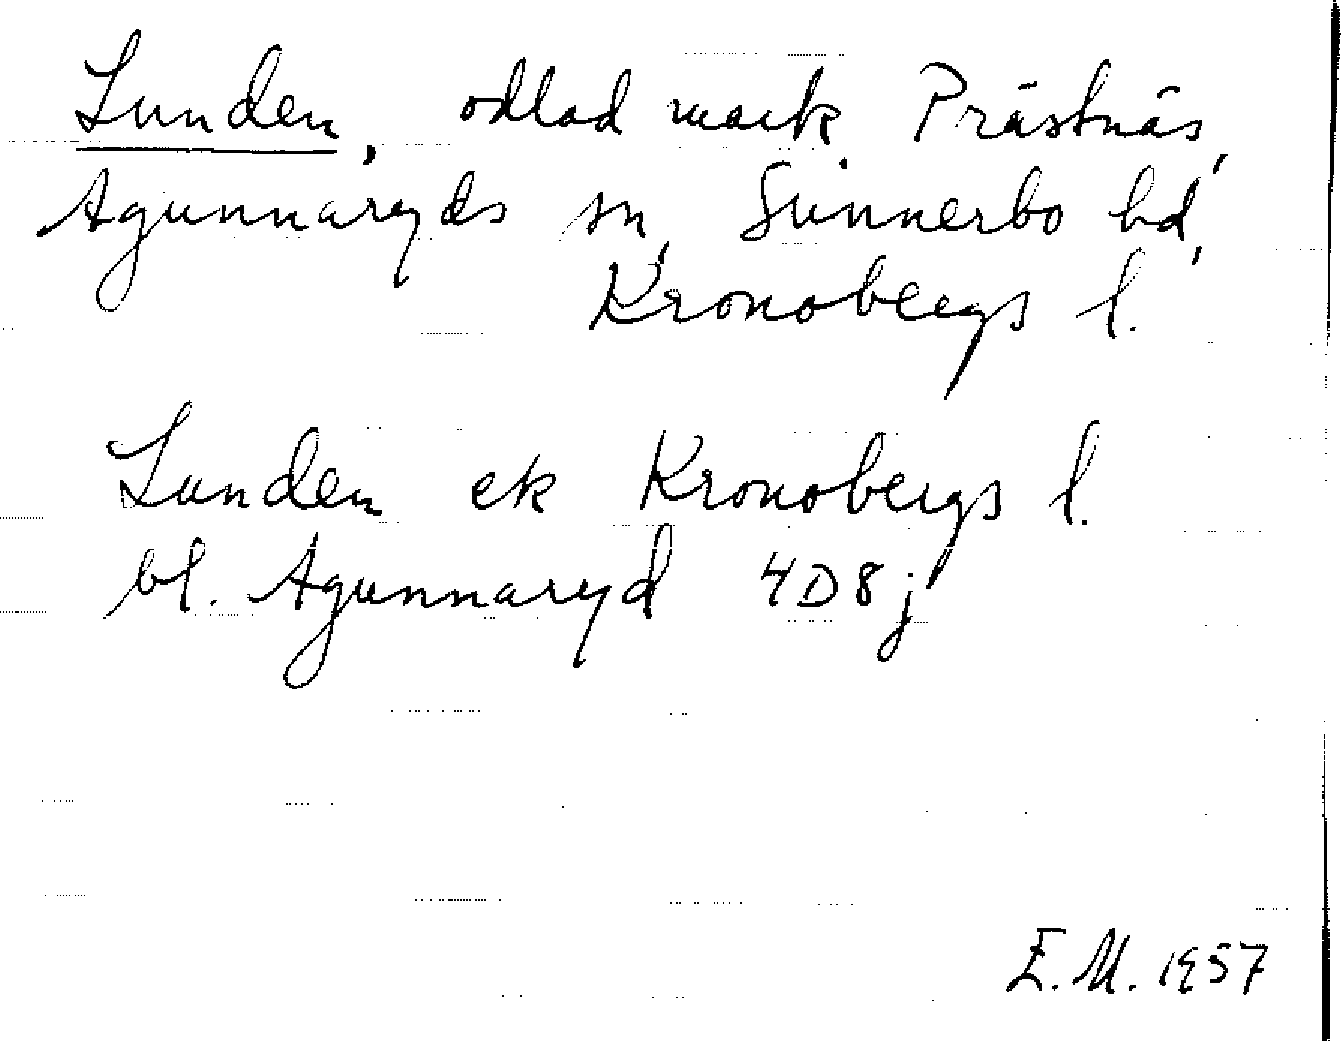 Lunden, odlad mark Prästnäs,
Agunnaryds sn, Sunnerbo hd,
Kronobergs l.
Lunden ek Kronobergs l.
bl. Agunnaryd 4D8j
E.M. 1957